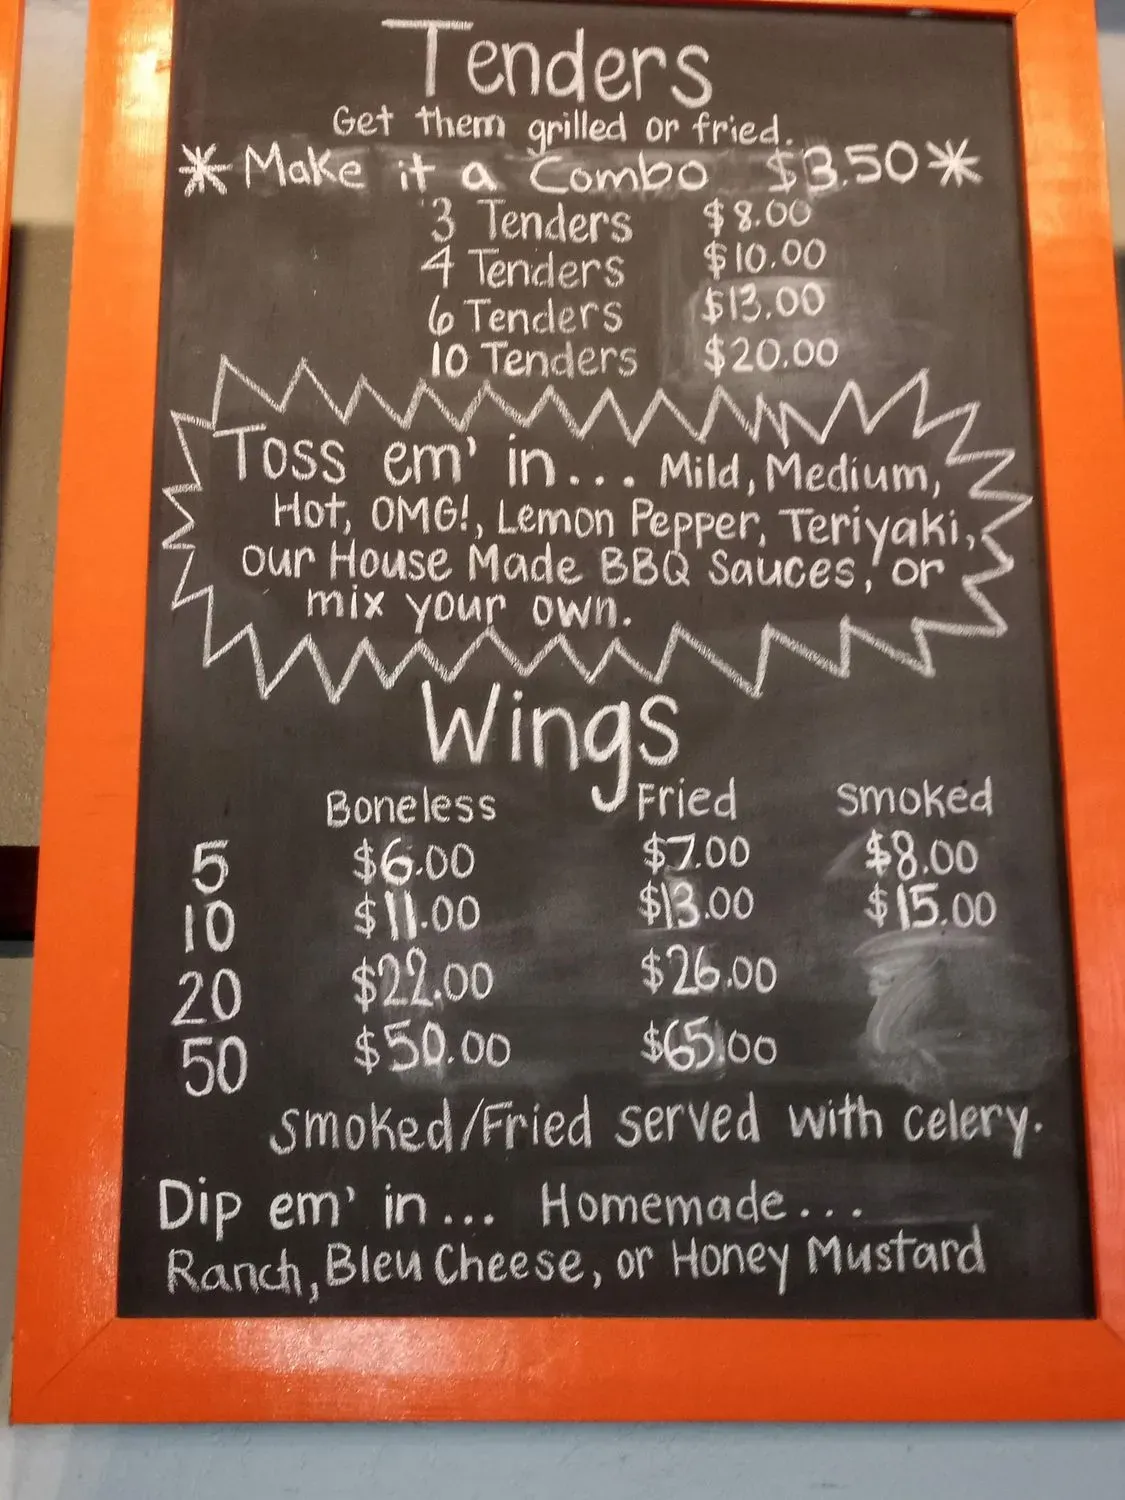 Tenders
Get them grilled or fried.
* Make it a Combo $3.50 *
3 Tenders $8.00
4 Tenders $10.00
6 Tenders $13.00
10 Tenders $20.00
Toss em' in... Mild, Medium,
Hot, OMG!, Lemon Pepper, Teriyaki,
our House Made BBQ Sauces, or
mix your own.
Wings
Boneless Fried Smoked
5 $6.00 $7.00 $8.00
10 $11.00 $13.00 $15.00
20 $22.00 $26.00
50 $50.00 $65.00
Smoked/Fried served with celery.
Dip em' in... Homemade...
Ranch, Bleu Cheese, or Honey Mustard